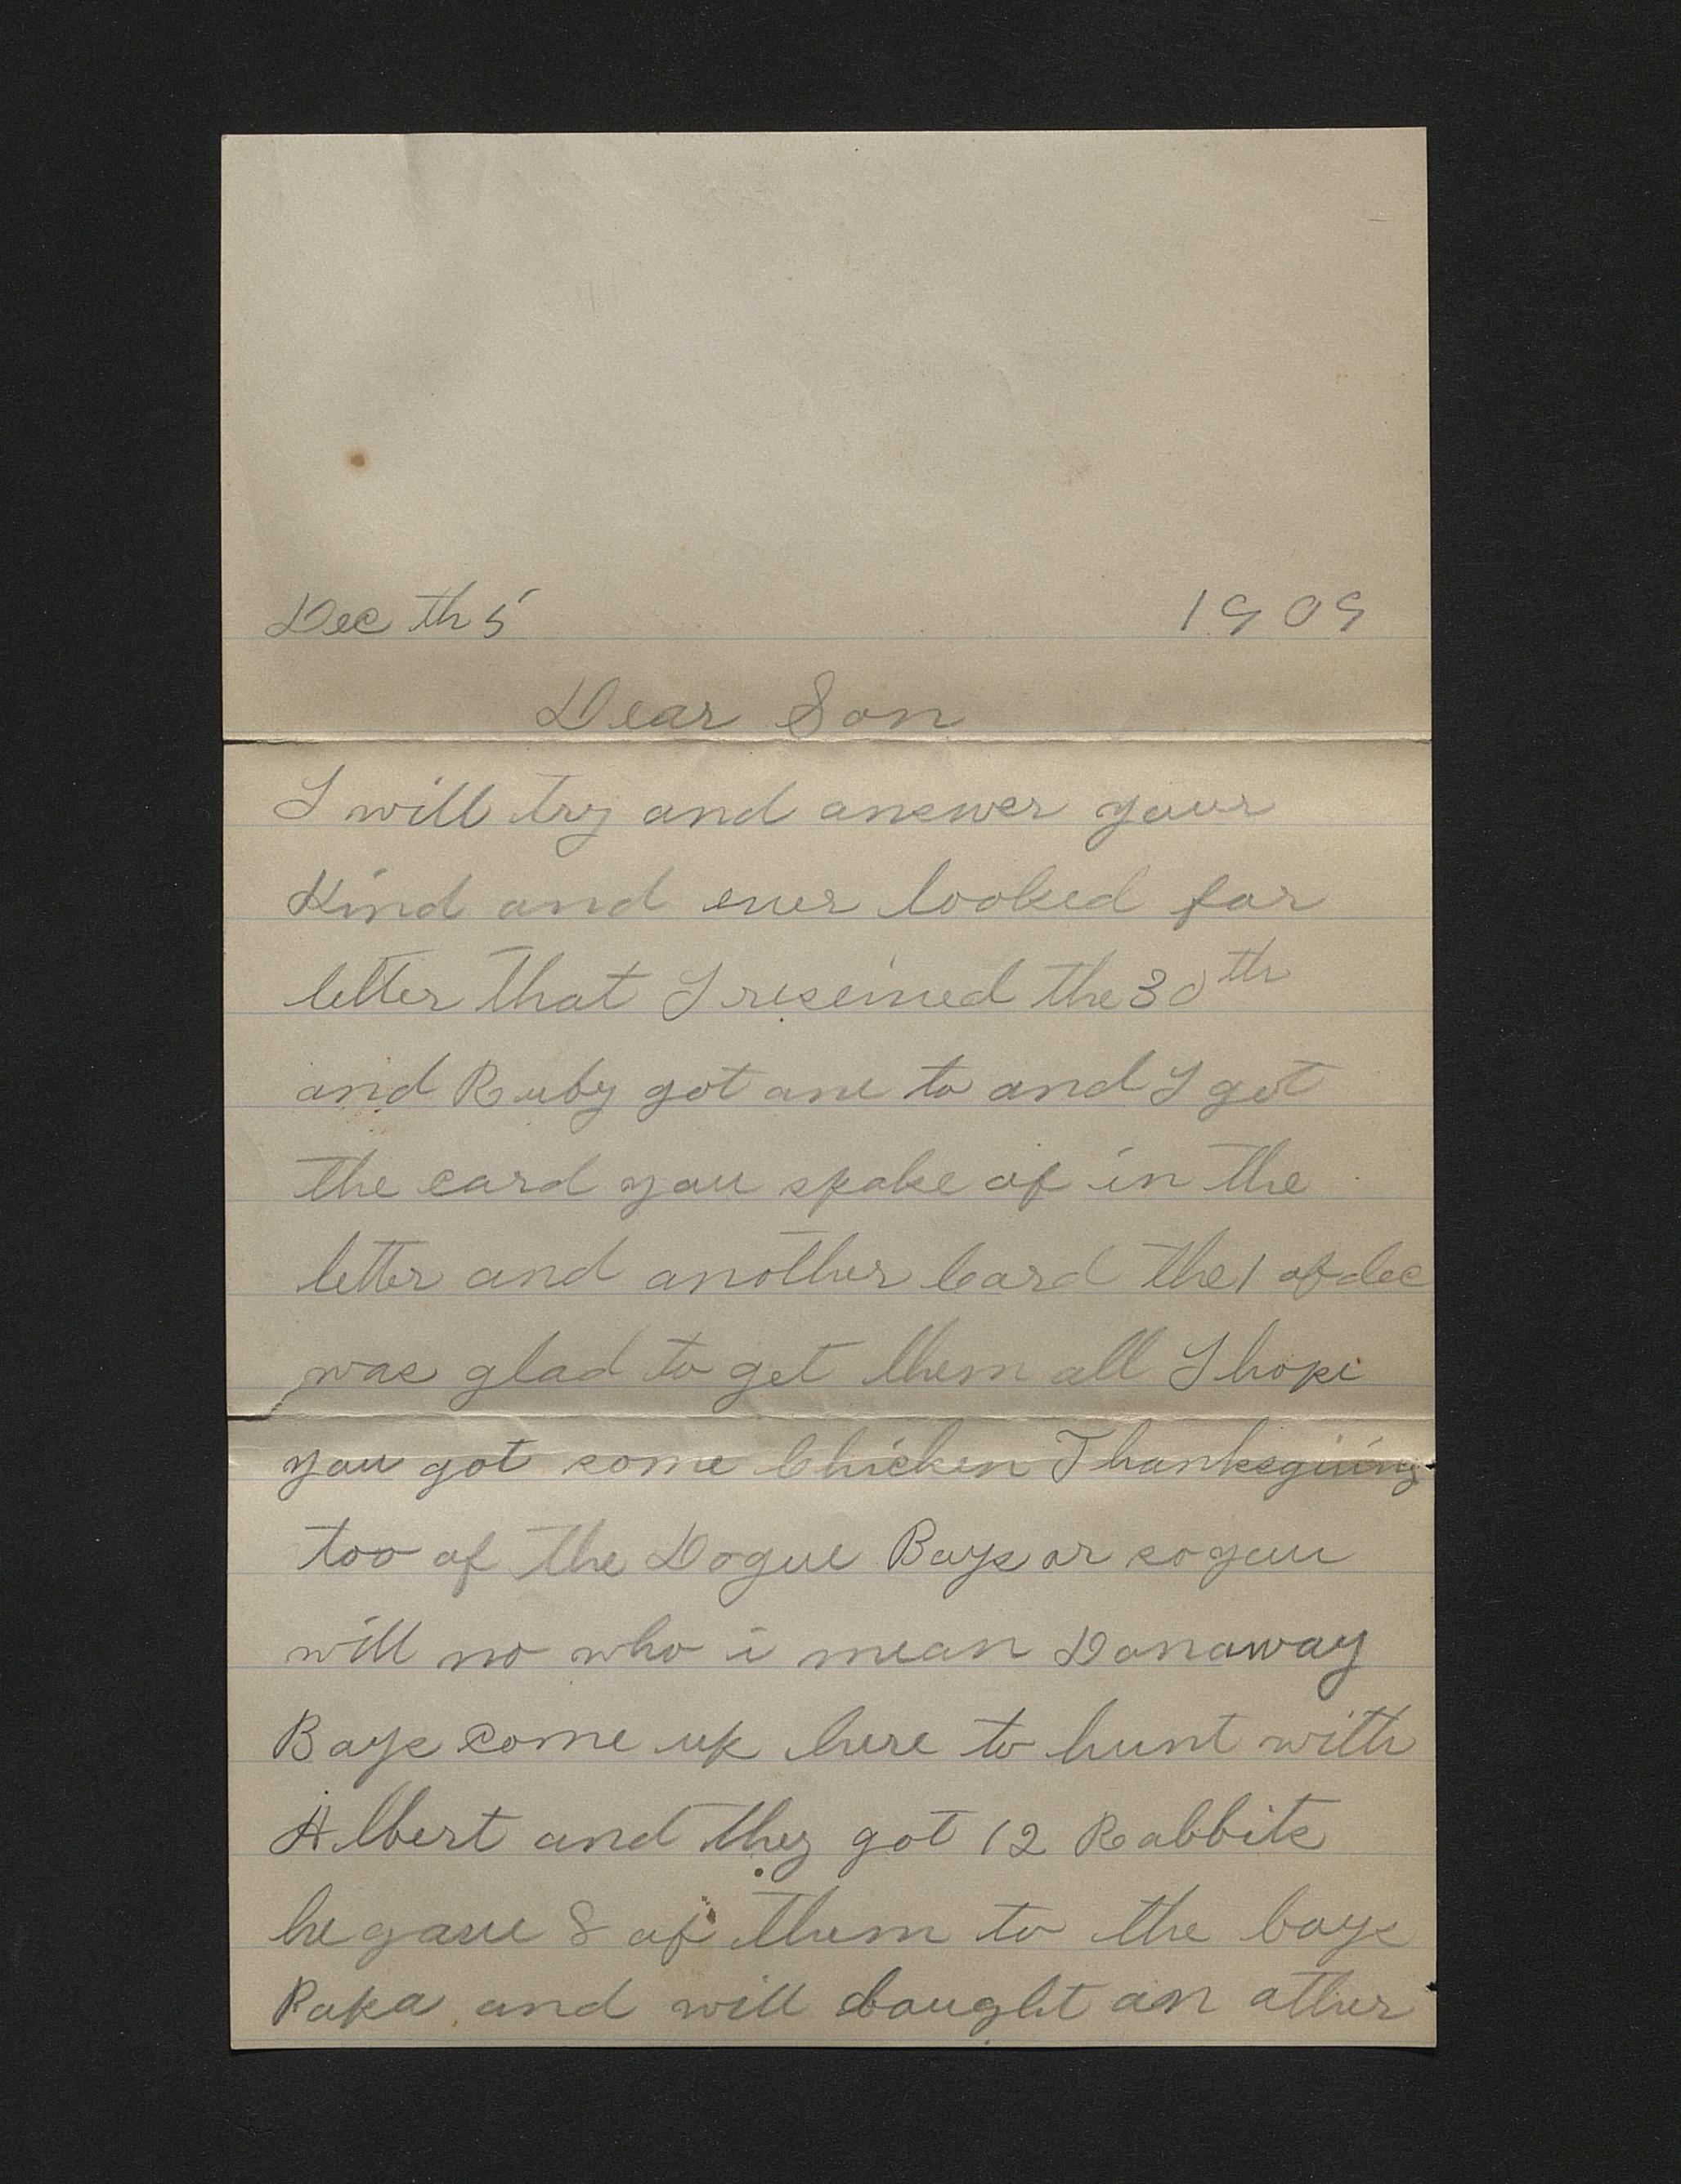 Dec th 5 1909
Dear Son
I will try and answer your
Kind and ever looked for
letter that I reseived the 30th
and Ruby got one to and I got
the card you spoke of in the
letter and another Card the 1 of dec
was glad to get them all I hope
you got some Chicken Thanksgiving
too of the Dogue Boys or so you
will no who i mean Donaway
Boys come up here to hunt with
Albert and they got 12 Rabbits
he gave 8 of them to the boys
Papa and will bought an other